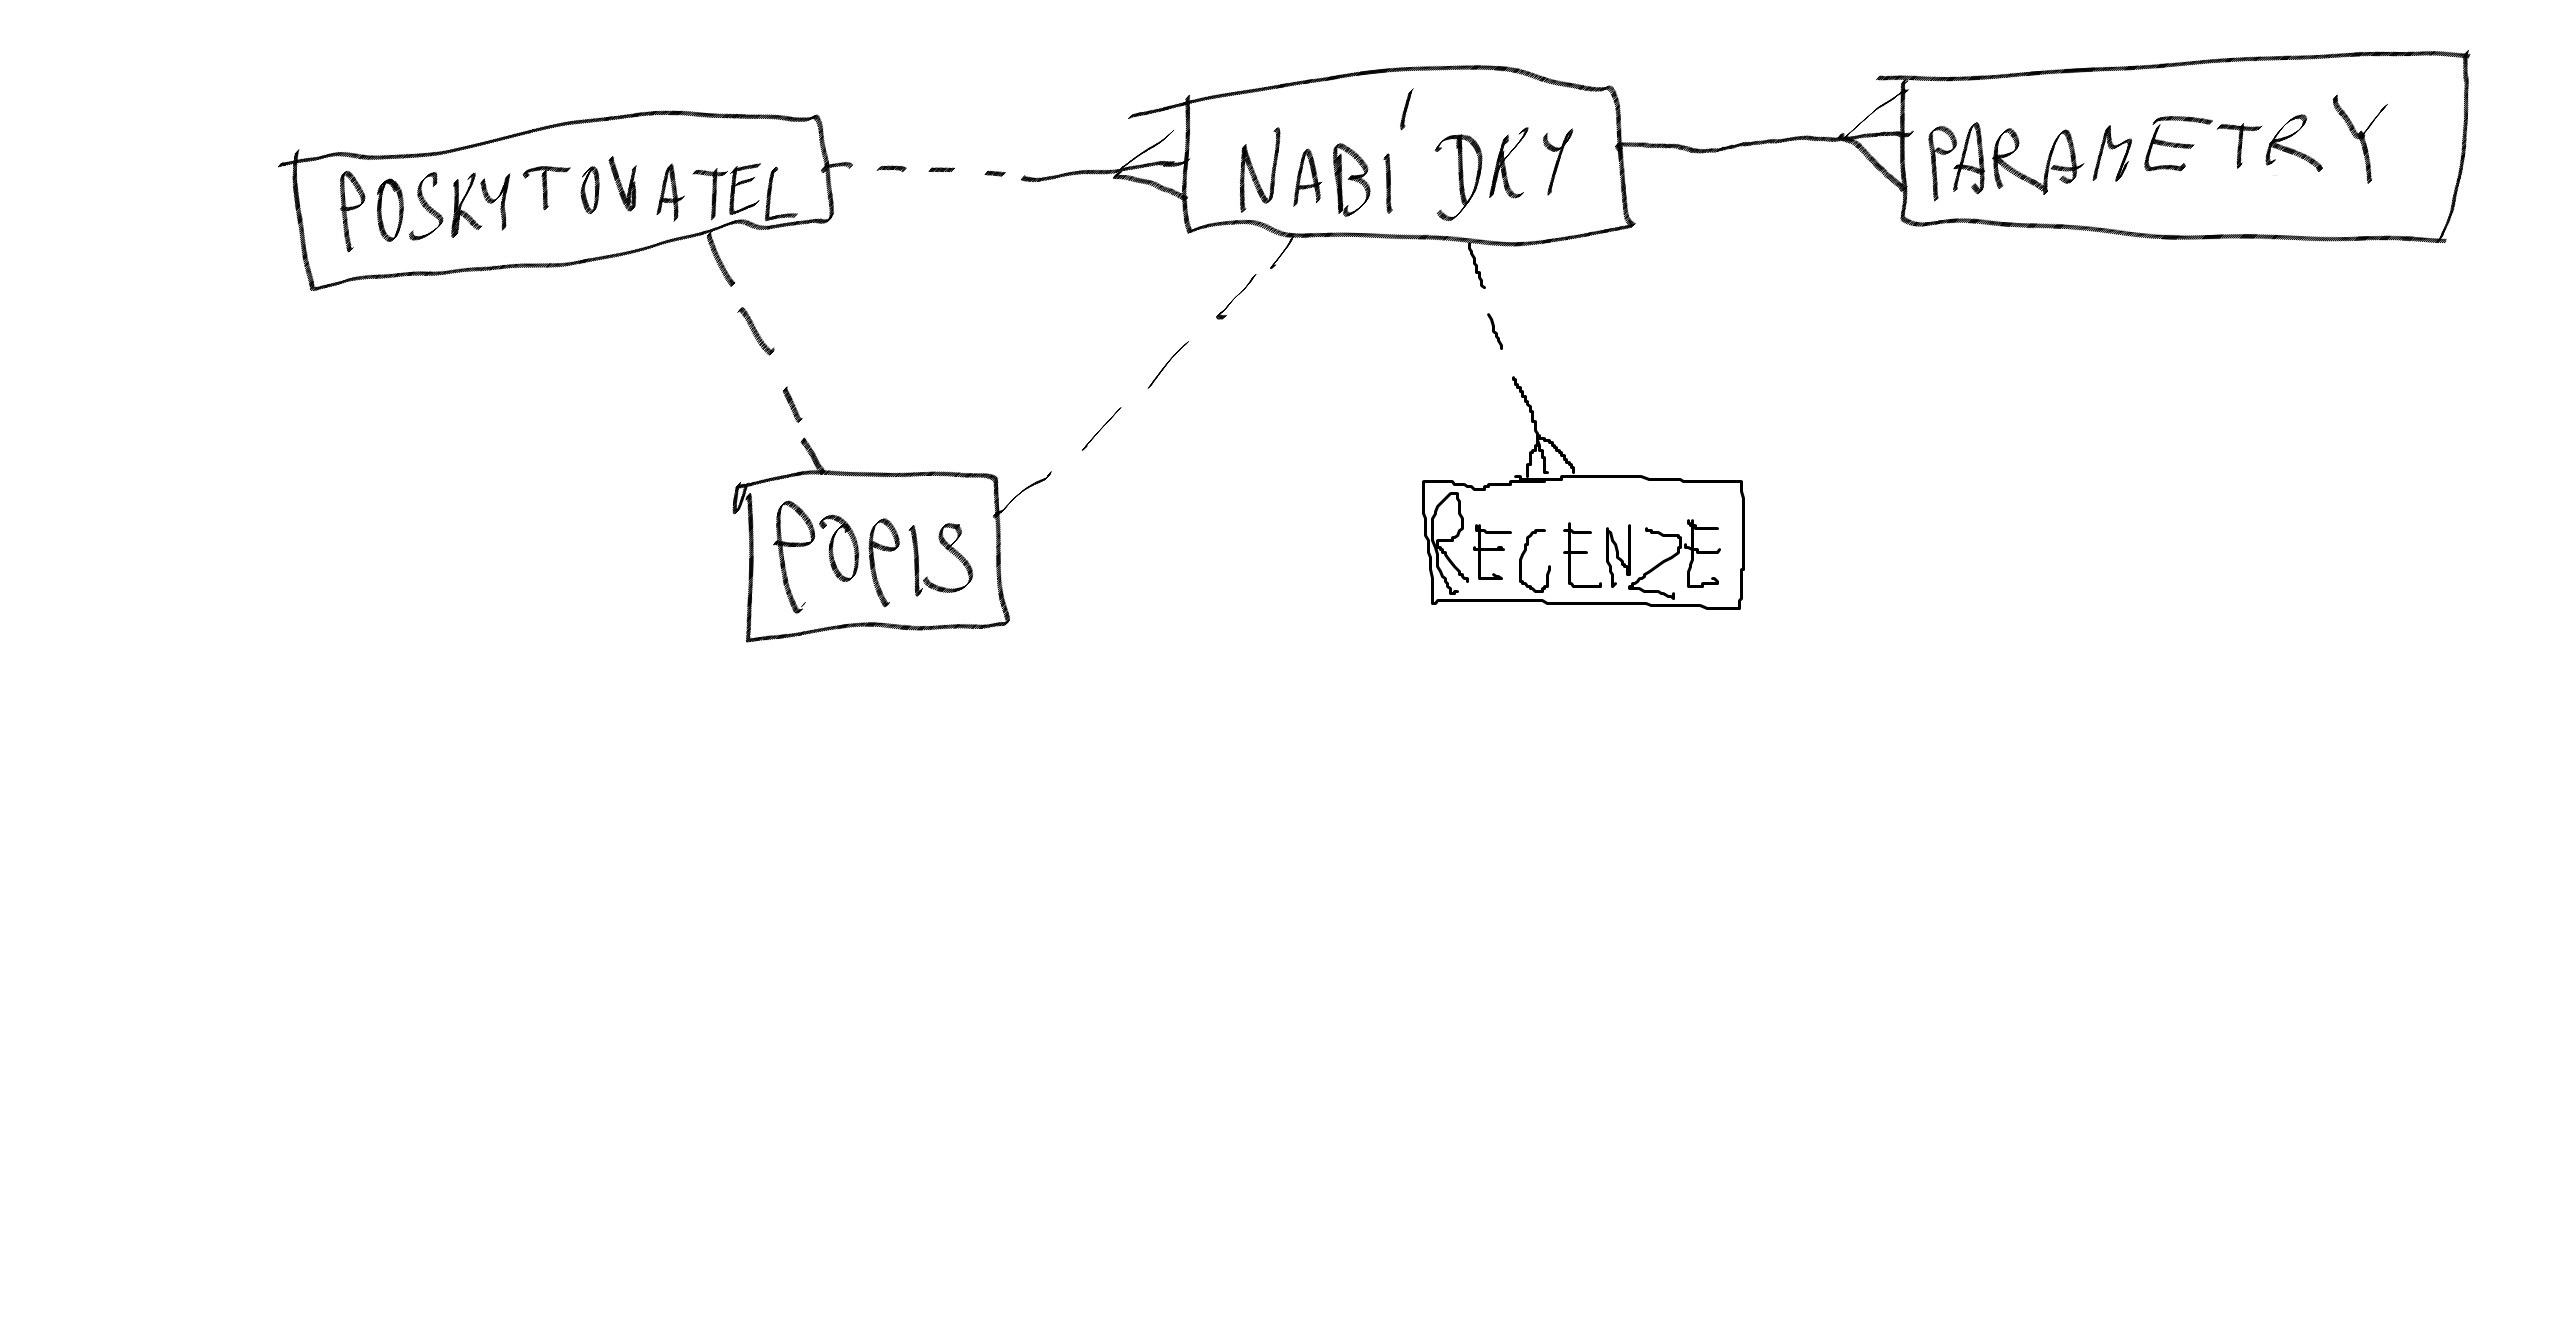 POSKYTOVATEL
NABÍDKY
PARAMETRY
POPIS
RECENZE